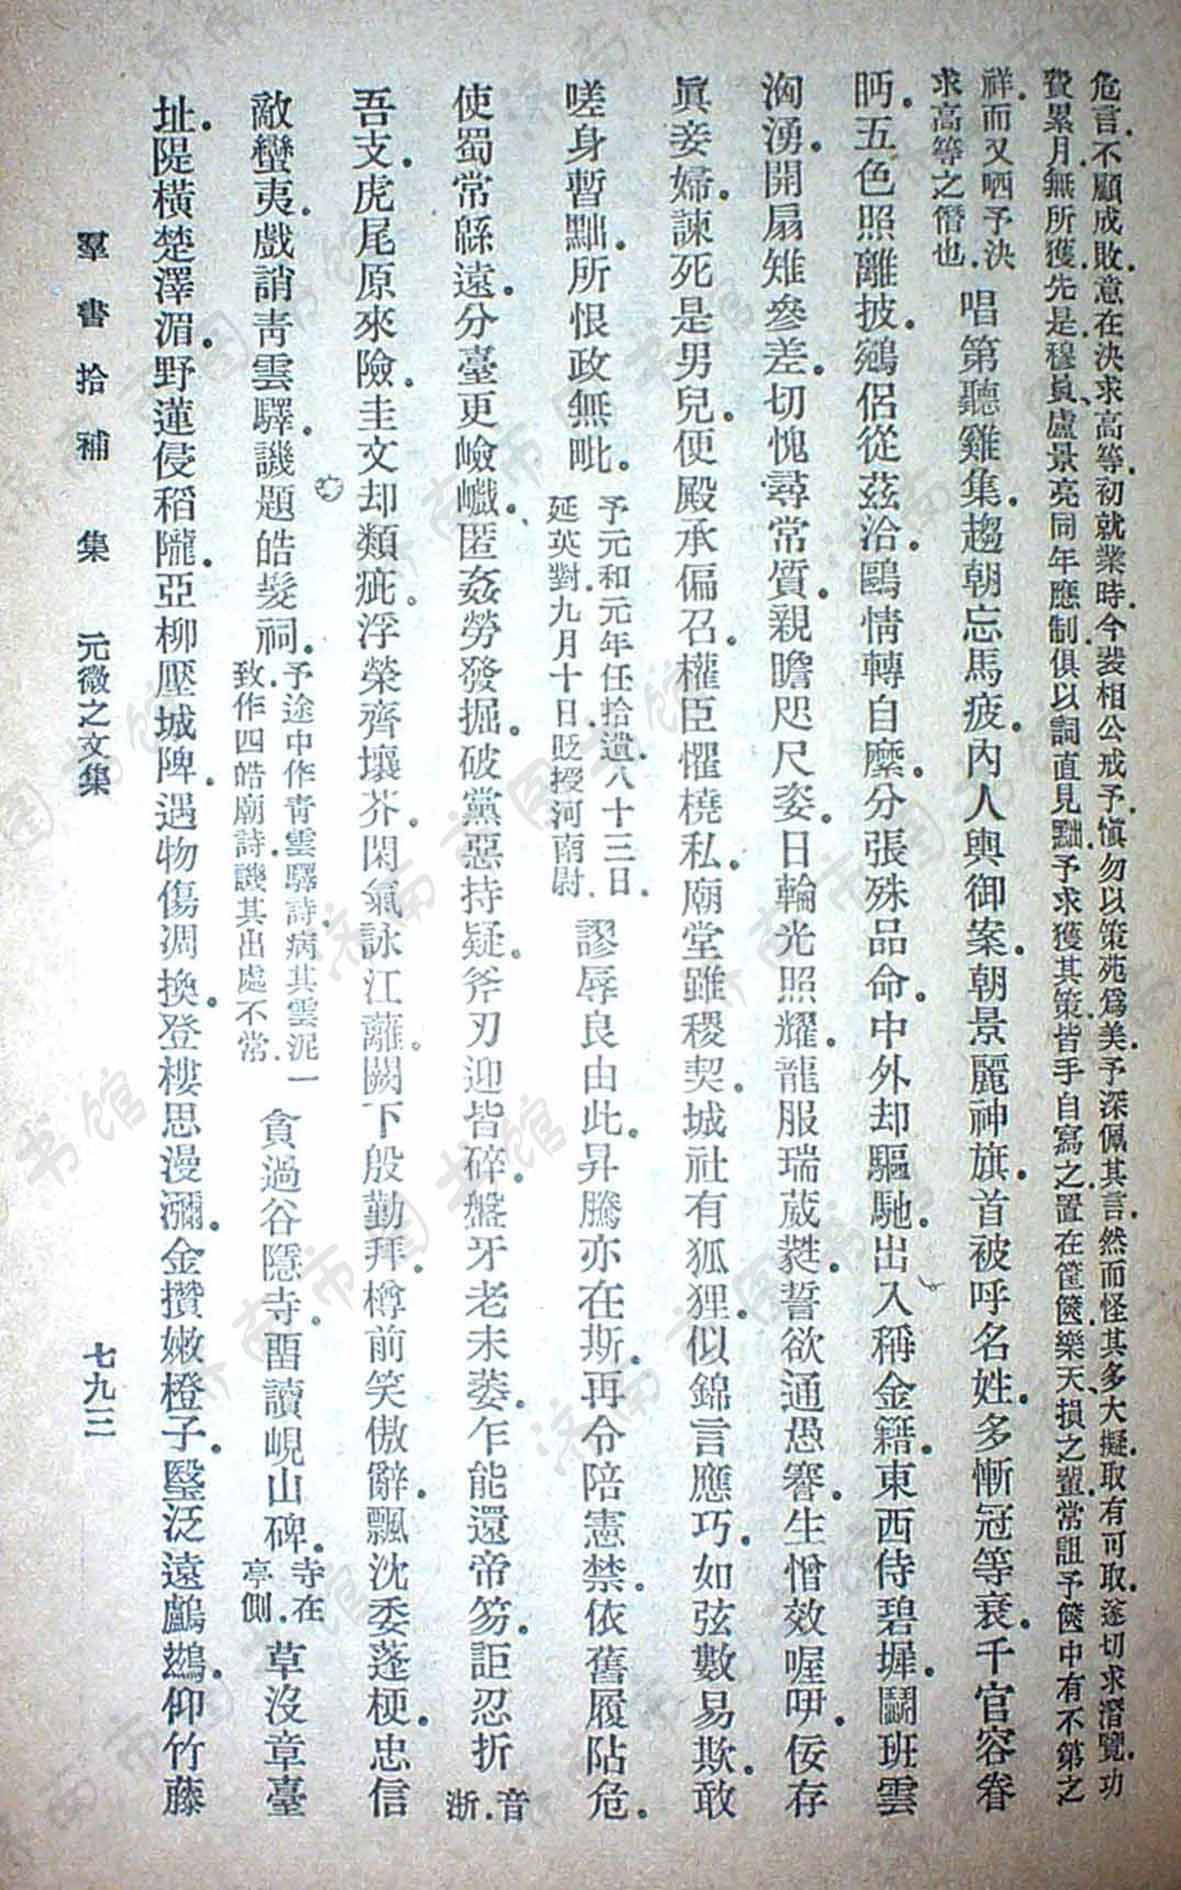 危言.不顧成敗.意在決求高等.初就業時.今裴相公戒予.愼勿以策苑爲美.予深佩其言.然而怪其多大擬取有可取.遂切求潛覽.功
費累月.無所獲.先是穆員、盧景亮同年應制.俱以詞直見黜.予求獲其策.皆手自寫之.置在筐篋.樂天、損之輩.常詛予篋中有不第之
祥.而又哂予決
求高等之僭也.
唱第聽雞集.趨朝忘馬疲.內人輿御案.朝景麗神旗.首被呼名姓.多慚冠等衰.千官容眷
眄.五色照離披.鵷侶從茲洽.鷗情轉自縻.分張殊品命.中外却驅馳.出入稱金籍.東西侍碧墀.鬭班雲
洶湧.開扇雉參差.切愧尋常質.親瞻咫尺姿.日輪光照耀.龍服瑞葳蕤.誓欲通愚謇.生憎效喔咿.佞存
眞妾婦.諫死是男兒.便殿承偏召.權臣懼橈私.廟堂雖稷契.城社有狐狸.似錦言應巧.如弦數易欺.敢
嗟身暫黜.所恨政無毗.
予元和元年任拾遺.八十三日.
延英對.九月十日.貶授河南尉.
謬辱良由此.昇騰亦在斯.再令陪憲禁.依舊履阽危.
使蜀常緜遠.分臺更嶮巇.匿姦勞發掘.破黨惡持疑.斧刃迎皆碎.盤牙老未萎.乍能還帝笏.詎忍折
音
浙.
吾支.虎尾原來險.圭文却類疵.浮榮齊壤芥.閑氣詠江蘺.闕下殷勤拜.樽前笑傲辭.飄沈委蓬梗.忠信
敵蠻夷.戲誚靑雲驛.譏題皓髮祠.
予途中作靑雲驛詩.病其雲泥一
致.作四皓廟詩.譏其出處不常.
貪過谷隱寺.畱讀峴山碑.
寺在
亭側.
草沒章臺
址.隄橫楚澤湄.野蓮侵稻隴.亞柳壓城陴.遇物傷凋換.登樓思漫瀰.金攢嫩橙子.瑿泛遠鸕鷀.仰竹藤
羣書拾補 集 元微之文集 七九三